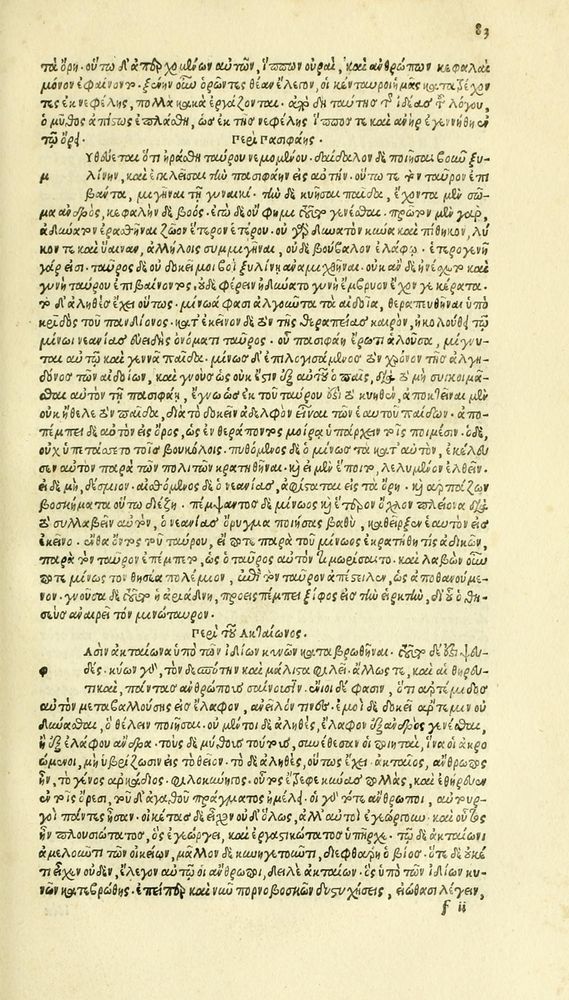 83
τὰ ὄρη. οὕτω δ' ἀπερχομένων αὐτῶν, ἵππων οὐραὶ, καὶ ἀνθρώπων κεφαλαὶ
μόνον ἐφαίνοντο. ξένην οὖν ὁρῶντες θέαν ἔλεγον, οἱ κένταυροι ἡμᾶς κατατρέχον
τες ἐκ νεφέλης, πολλὰ κακὰ ἐργάζονται. ἀπὸ δὴ ταύτης τῆς ἰδέας τοῦ λόγου,
ὁ μῦθος ἀπίστως ἐπλάσθη, ὡς ἐκ τῆς νεφέλης ἵππος τε καὶ ἀνὴρ ἐγεννήθη ἐν
τῷ ὄρει. Περὶ Πασιφάης.
Μυθεύεται ὅτι ἠράσθη ταύρου νεμομένου. δαίδαλον δὲ ποιῆσαι βοῦν ξυ-
μ λίνην, καὶ ἐγκλεῖσαι τὴν πασιφάην εἰς αὐτήν. οὕτω τε τὸν ταῦρον ἐπι
βάντα, μιγῆναι τῇ γυναικί. τὴν δὲ κυῆσαι παῖδα, ἔχοντα μὲν σῶ-
μα ἀνδρὸς, κεφαλὴν δὲ βοός. ἐγὼ δὲ οὔ φημι τοῦτο γενέσθαι. πρῶτον μὲν γὰρ,
ἀδύνατον ἐρασθῆναι ζῶον ἕτερον ἑτέρου. οὐ γὰρ δυνατὸν κύνα καὶ πίθηκον, λύ
κον τε καὶ ὕαιναν, ἀλλήλοις συμμιγῆναι, οὐδὲ βούβαλον ἐλάφῳ. ἑτερογενῆ
γάρ εἰσι. ταῦρος δὲ οὐ δοκεῖ μοι βοῒ ξυλίνῃ ἀναμιχθῆναι. οὐκ ἂν δὲ ἠνέσχετο καὶ
γυνὴ ταῦρον ἐπιβαίνοντα, οὐδὲ φέρειν ἠδύνατο γυνὴ ἔμβρυον ἔχον γε κέρατα.
τὸ δ' ἀληθὲς ἔχει οὕτως. μίνωά φασι ἀλγοῦντα τὰ αἰδοῖα, θεραπευθῆναι ὑπὸ
κρίδος τοῦ πανδίονος. κατ' ἐκεῖνον δὲ τὸν τῆς θεραπείας καιρὸν, ἠκολούθει τῷ
μίνωϊ νεανίας εὐειδὴς ὀνόματι ταῦρος. οὗ πασιφάη ἔρωτι ἁλοῦσα, μίγνυ-
ται αὐτῷ καὶ γεννᾷ παῖδα. μίνως δ' ἐπιλογισάμενος τὸν χρόνον τῆς ἀλγη-
δόνος τῶν αἰδοίων, καὶ γνοὺς ὡς οὐκ ἔστιν ἐξ αὐτοῦ ὁ παῖς, διὰ τὸ μὴ συγκοιμᾶ-
σθαι αὐτὸν τῇ πασιφάῃ, ἔγνω ὡς ἐκ τοῦ ταύρου ἐστὶ τὸ κυηθὲν, ἀποκτεῖναι μὲν
οὐκ ἤθελε τὸν παῖδα, διὰ τὸ δοκεῖν ἀδελφὸν εἶναι τῶν ἑαυτοῦ παίδων. ἀπο-
πέμπει δὲ αὐτὸν εἰς ὄρος, ὡς ἐν θεράποντος μοίρᾳ ὑπάρχειν τοῖς ποιμέσιν. ὁ δὲ,
οὐχ ὑπετάσσετο τοῖς βουκόλοις. πυθόμενος δὲ ὁ μίνως τὰ κατ' αὐτὸν, ἐκέλευ
σεν αὐτὸν παρὰ τῶν πολιτῶν κρατηθῆναι. καὶ εἰ μὲν ἕποιτο, λελυμένον ἐλθεῖν.
εἰ δὲ μὴ, δέσμιον. αἰσθόμενος δὲ ὁ νεανίας, ἀφίσταται εἰς τὰ ὄρη. καὶ ἁρπάζων
βοσκήματα οὕτω διέζη. πέμψαντος δὲ μίνωος καὶ ἕτερον ὄχλον πλείονα διὰ
τὸ συλλαβεῖν αὐτὸν, ὁ νεανίας ὄρυγμα ποιήσας βαθὺ, καθεῖρξεν ἑαυτὸν εἰς
ἐκεῖνο. ἔνθα ὄντος τοῦ ταύρου, εἴ ποτε παρὰ τοῦ μίνωος ἐκρατήθη τις ἀδικῶν,
παρὰ τὸν ταῦρον ἐπέμπετο, ὡς ὁ ταῦρος αὐτὸν τιμωρίσαιτο. καὶ λαβὼν οὖν
ποτε μίνως τὸν θησέα πολέμιον, ἐπὶ τὸν ταῦρον ἀπέστειλεν, ὡς ἀποθανούμε-
νον. γνοῦσα δὲ τοῦτο ἡ ἀριάδνη, προεισπέμπει ξίφος εἰς τὴν εἱρκτὴν, δι' οὗ ὁ θη-
σεὺς ἀναιρεῖ τὸν μινώταυρον.
Περὶ τοῦ Ἀκταίωνος.
Ασὶν ἀκταίωνα ὑπὸ τῶν ἰδίων κυνῶν καταβρωθῆναι. τοῦτο δέ ἐστι ψευ-
φ δές. κύων γὰρ, τὸν δεσπότην καὶ μάλιστα φιλεῖ. ἄλλως τε, καὶ αἱ θηρευ-
τικαὶ, πάντας ἀνθρώπους σαίνουσιν. ἔνιοι δέ φασιν, ὅτι ἀρτέμιδος
αὐτὸν μεταβαλλούσης εἰς ἔλαφον, ἀνεῖλον κύνες. ἐμοὶ δὲ δοκεῖ ἄρτεμιν οὐ
δύνασθαι, ὃ θέλειν ποιῆσαι. οὐ μέντοι δὲ ἀληθὲς, ἔλαφον ἐξ ἀνδρὸς γενέσθαι,
ἢ ἐξ ἐλάφου ἄνδρα. τοὺς δὲ μύθους τούτους, συνέθεσαν οἱ ποιηταὶ, ἵνα οἱ ἀκρο
ώμενοι, μὴ ὑβρίζωσιν εἰς τὸ θεῖον. τὸ δὲ ἀληθὲς, οὕτως ἔχει. ἀκταίος, ἄνθρωπος
ἦν, τὸ γένος ἀρκάδιος. φιλοκύνηγος. οὗτος ἔτρεφε κύνας πολλὰς, καὶ ἐθήρευεν
ἐν τοῖς ὄρεσι, τοῦ δ' ἀγαθοῦ πράγματος ἠμέλει. οἱ γὰρ τότε ἄνθρωποι, αὐτουρ-
γοὶ πάντες ἦσαν. οἰκέτας δὲ εἶχον οὐδ' ὅλως, ἀλλ' αὐτοὶ ἐγεώργουν. καὶ οὗτος
ἦν πλουσιώτατος, ὃς ἐγεώργει, καὶ ἐργατικώτατος ὑπῆρχε. τῷ δὲ ἀκταίωνι
ἀμελοῦντι τῶν οἰκείων, μᾶλλον δὲ κυνηγετοῦντι, διεφθάρη ὁ βίος. ὅτε δὲ οὐκέ
τι εἶχεν οὐδὲν, ἔλεγον αὐτῷ οἱ ἄνθρωποι, δείλε ἀκταίων. ὃς ὑπὸ τῶν ἰδίων κυ-
νῶν κατεβρώθης. ἐπείπερ καὶ νῦν πορνοβοσκῶν δυστυχήσεις, εἰώθασι λέγειν,
f ii